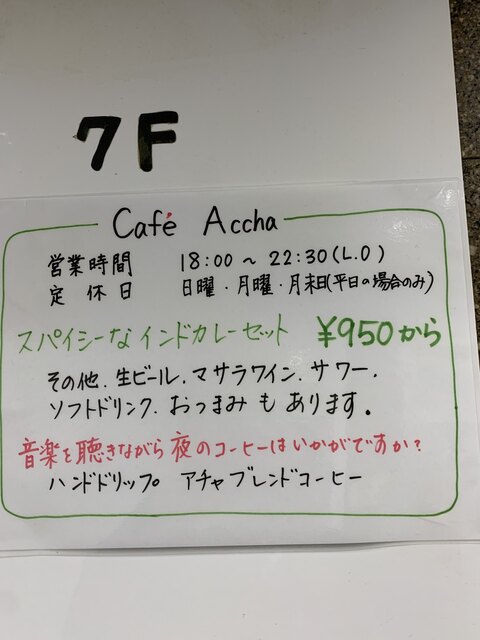 7F
Café Accha
営業時間 18:00 ~ 22:30(L.O)
定休日 日曜・月曜・月末日(平日の場合のみ)
スパイシーなインドカレーセット ¥950から
その他.生ビール.マサラワイン.サワー.
ソフトドリンク.おつまみもあります。
音楽を聴きながら夜のコーヒーはいかがですか?
ハンドドリップ アチャブレンドコーヒー